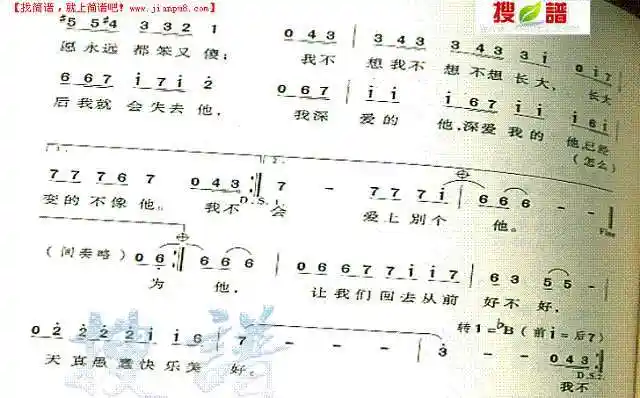 【找简谱，就上简谱吧！www.jianpu8.com】
搜谱
#5 5 #4 3 3 2 1 0 4 3 | 3 4 3 3 4 3 3 i | 0 i 7
愿永远 都笨又傻； 我不 想我不 想不想长大， 长大
6 6 7 i 7 i 2 0 6 7 | i i i 6 7 i i | i 6 i
后我就 会失去 他， 我深 爱的 他，深爱我的 他，已经
(怎么)
1. 2.
7 7 7 6 7 0 4 3 :‖ 7 - - 7 7 7 i | 6 6 6 - - ‖
变的不像他。 我不 会 爱上别个 他。
D.S.1. Fine
(间奏略) 0 6 :‖ 6 6 6 | 0 6 6 7 7 i i 7 | 6 3 5 5 -
为 他， 让我们回去从前 好不好，
转1=♭B (前i=后7)
0 2 2 2 2 i i 6 | 7 - - - | 3 - - 0 4 3
天真愚蠢快乐美 好。 我不
D.S.2.
搜谱